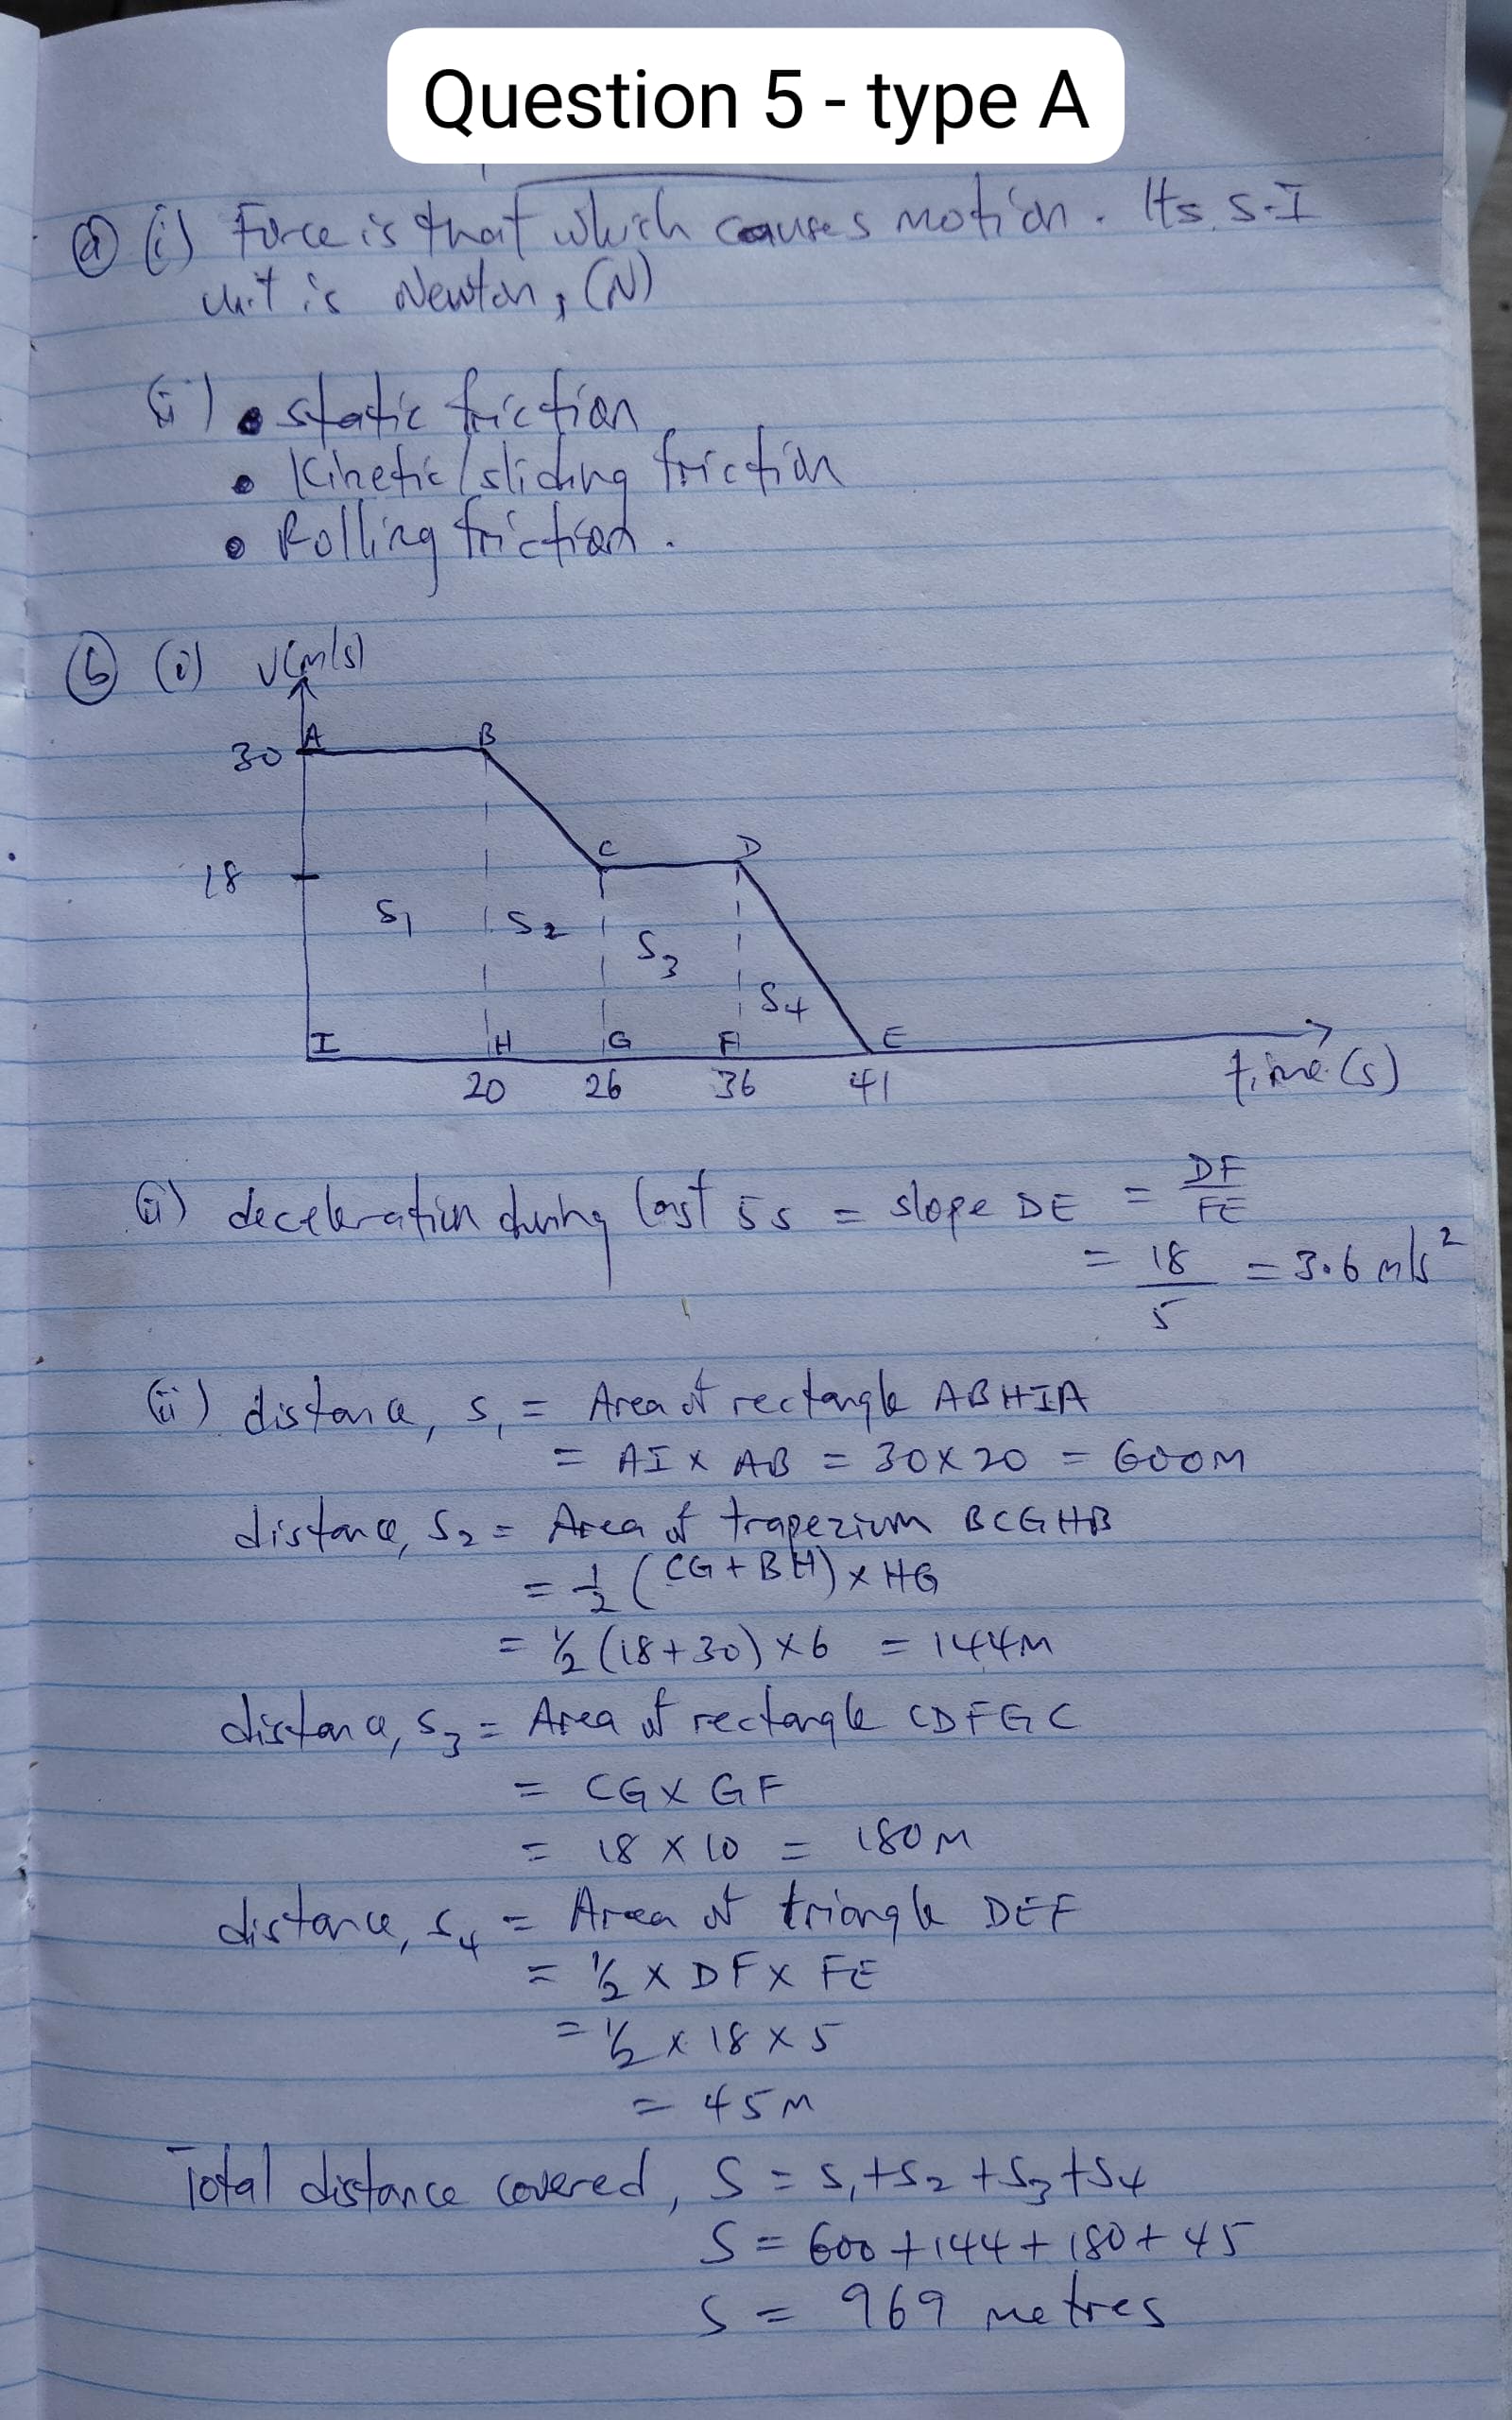 Question 5 - type A
(a) (i) Force is that which causes motion. Its S.I
unit is Newton, (N)
(ii) • static friction
• Kinetic/sliding friction
• Rolling friction.
(b) (i) V(m/s)
30 A B
18 C D
S1 S2 S3 S4
I H G F E
20 26 36 41 time(s)
(ii) deceleration during last 5s = slope DE = DF/FE
= 18/5 = 3.6 m/s²
(iii) distance, S1 = Area of rectangle ABHIA
= AI x AB = 30 x 20 = 600M
distance, S2 = Area of trapezium BCGHB
= 1/2 (CG + BH) x HG
= 1/2 (18+30) x 6 = 144M
distance, S3 = Area of rectangle CDFGC
= CG x GF
= 18 x 10 = 180M
distance, S4 = Area of triangle DEF
= 1/2 x DF x FE
= 1/2 x 18 x 5
= 45M
Total distance covered, S = S1+S2+S3+S4
S = 600+144+180+45
S = 969 metres